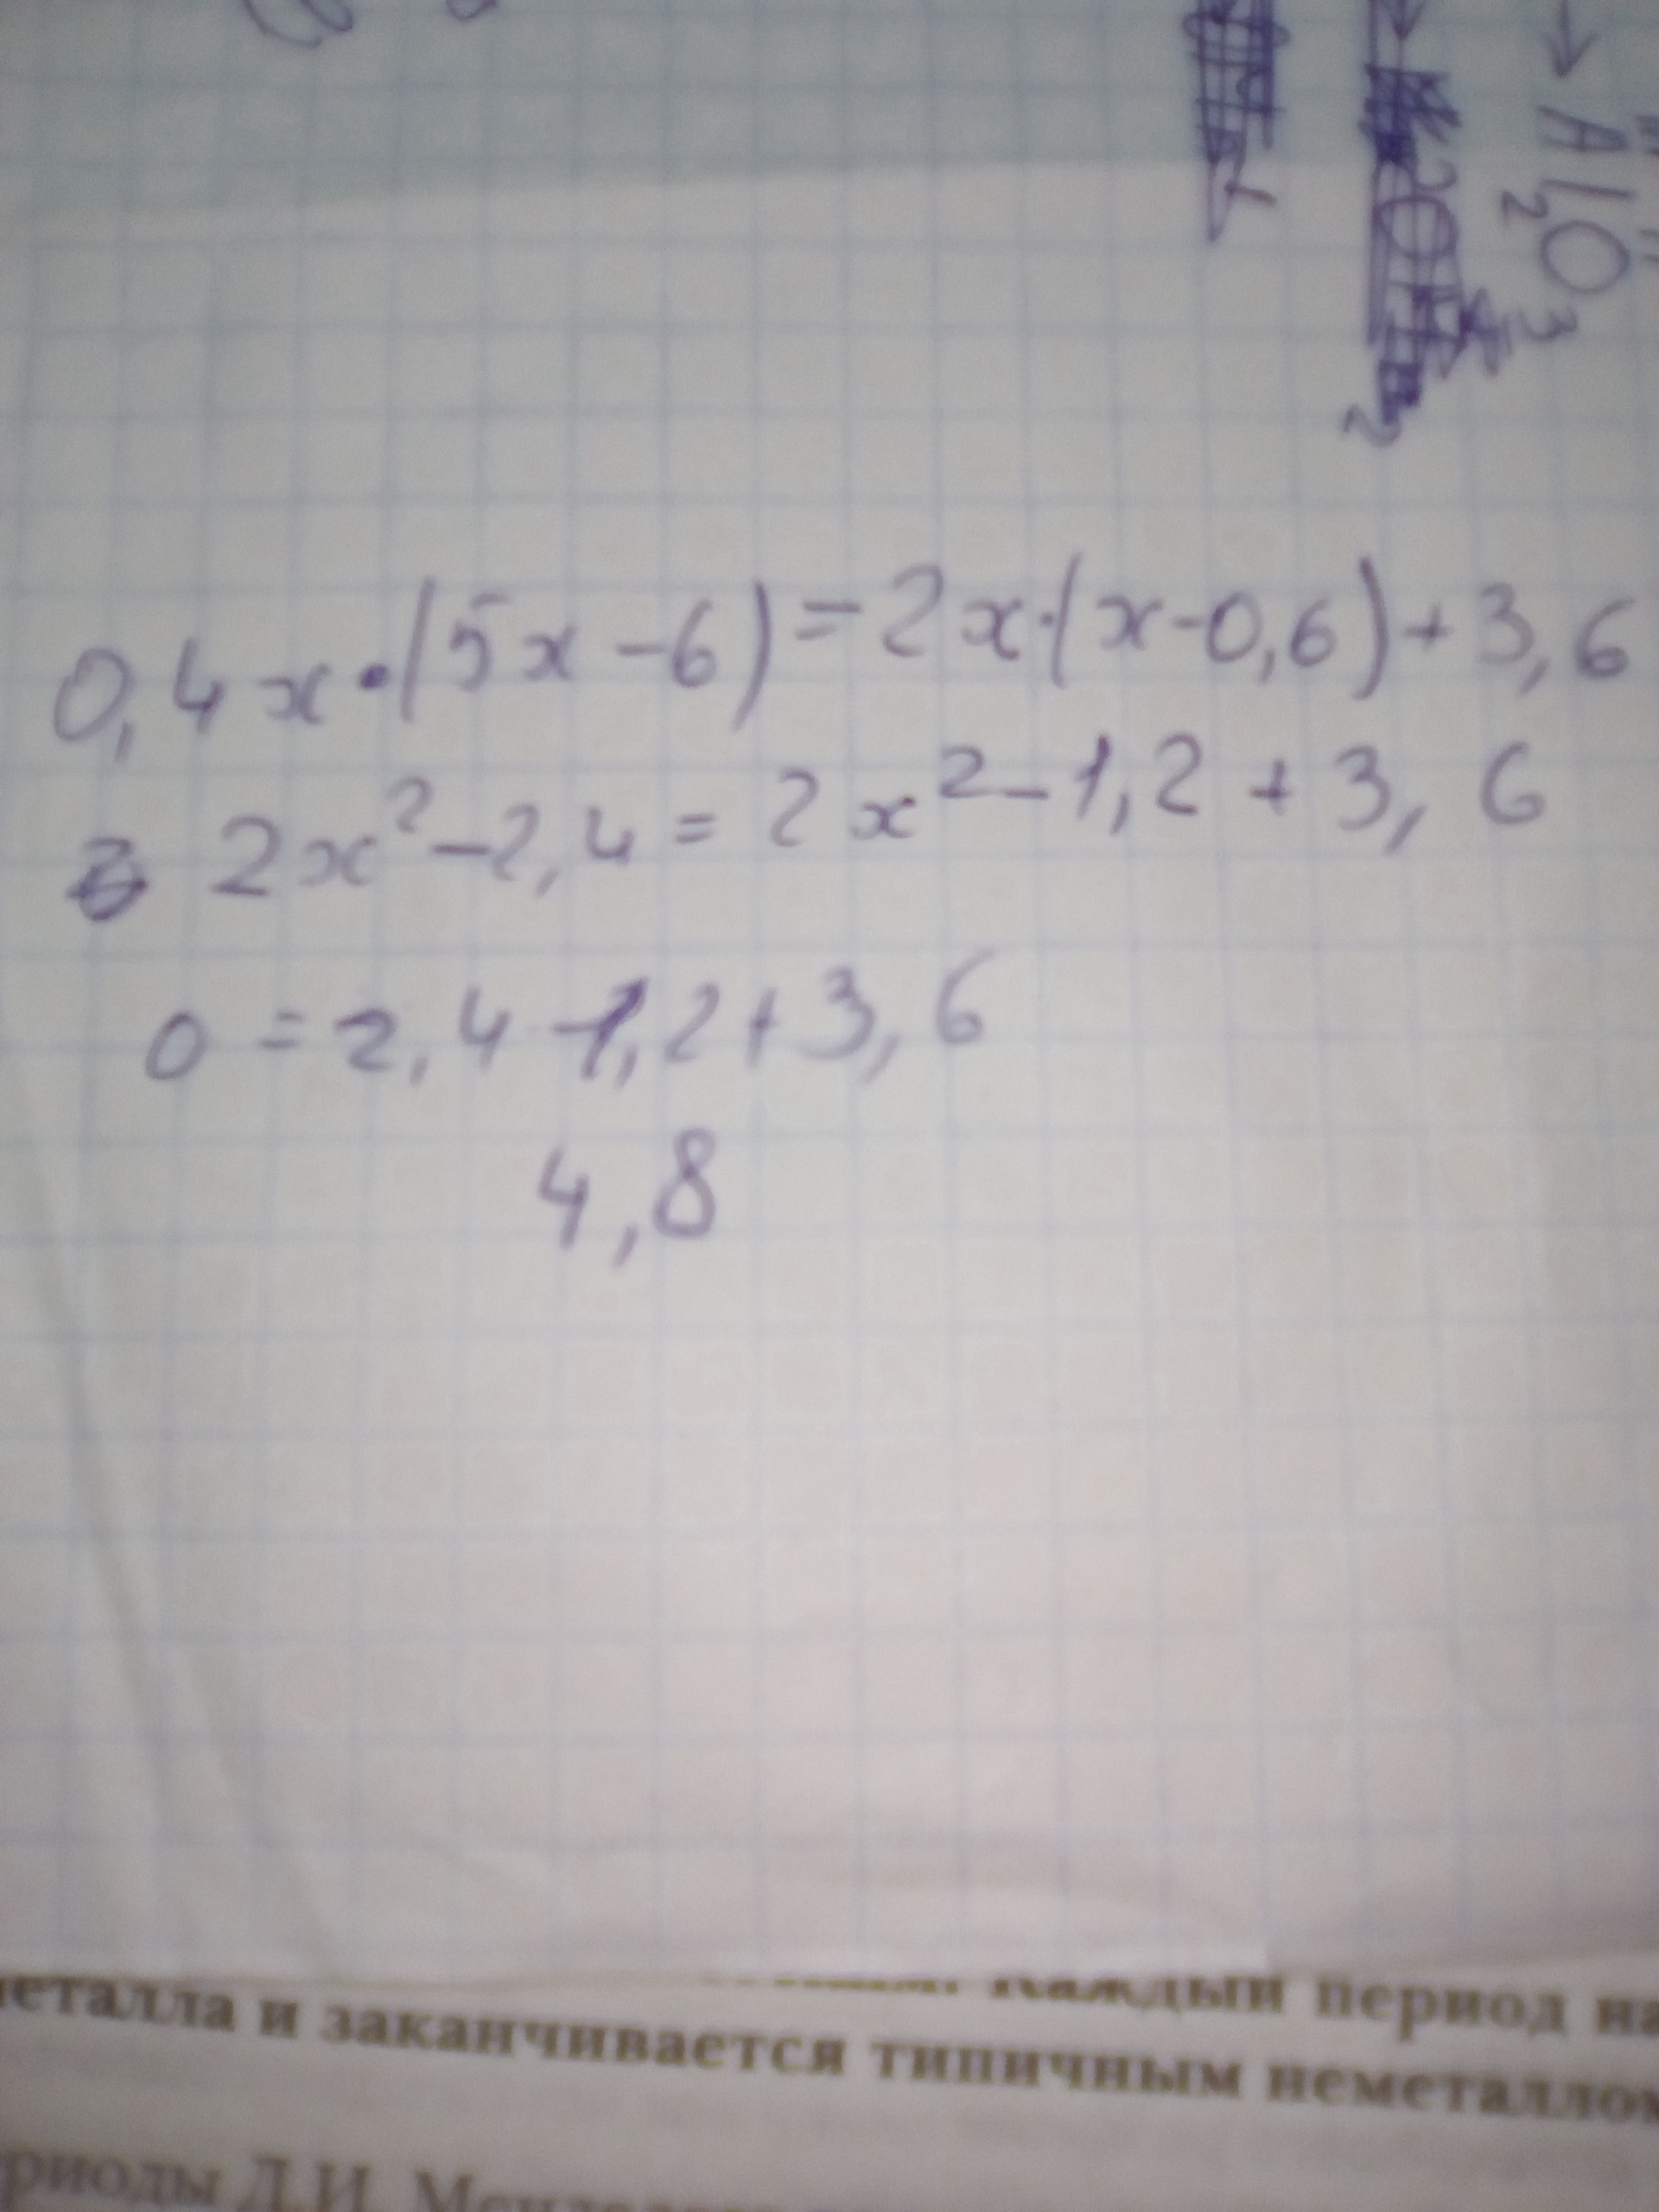 Al2O3
0,4x•(5x-6)=2x·(x-0,6)+3,6
2x²-2,4=2x²-1,2+3,6
0=2,4-1,2+3,6
4,8
Каждый период на
металла и заканчивается типичным неметаллом
риоды Д.И.